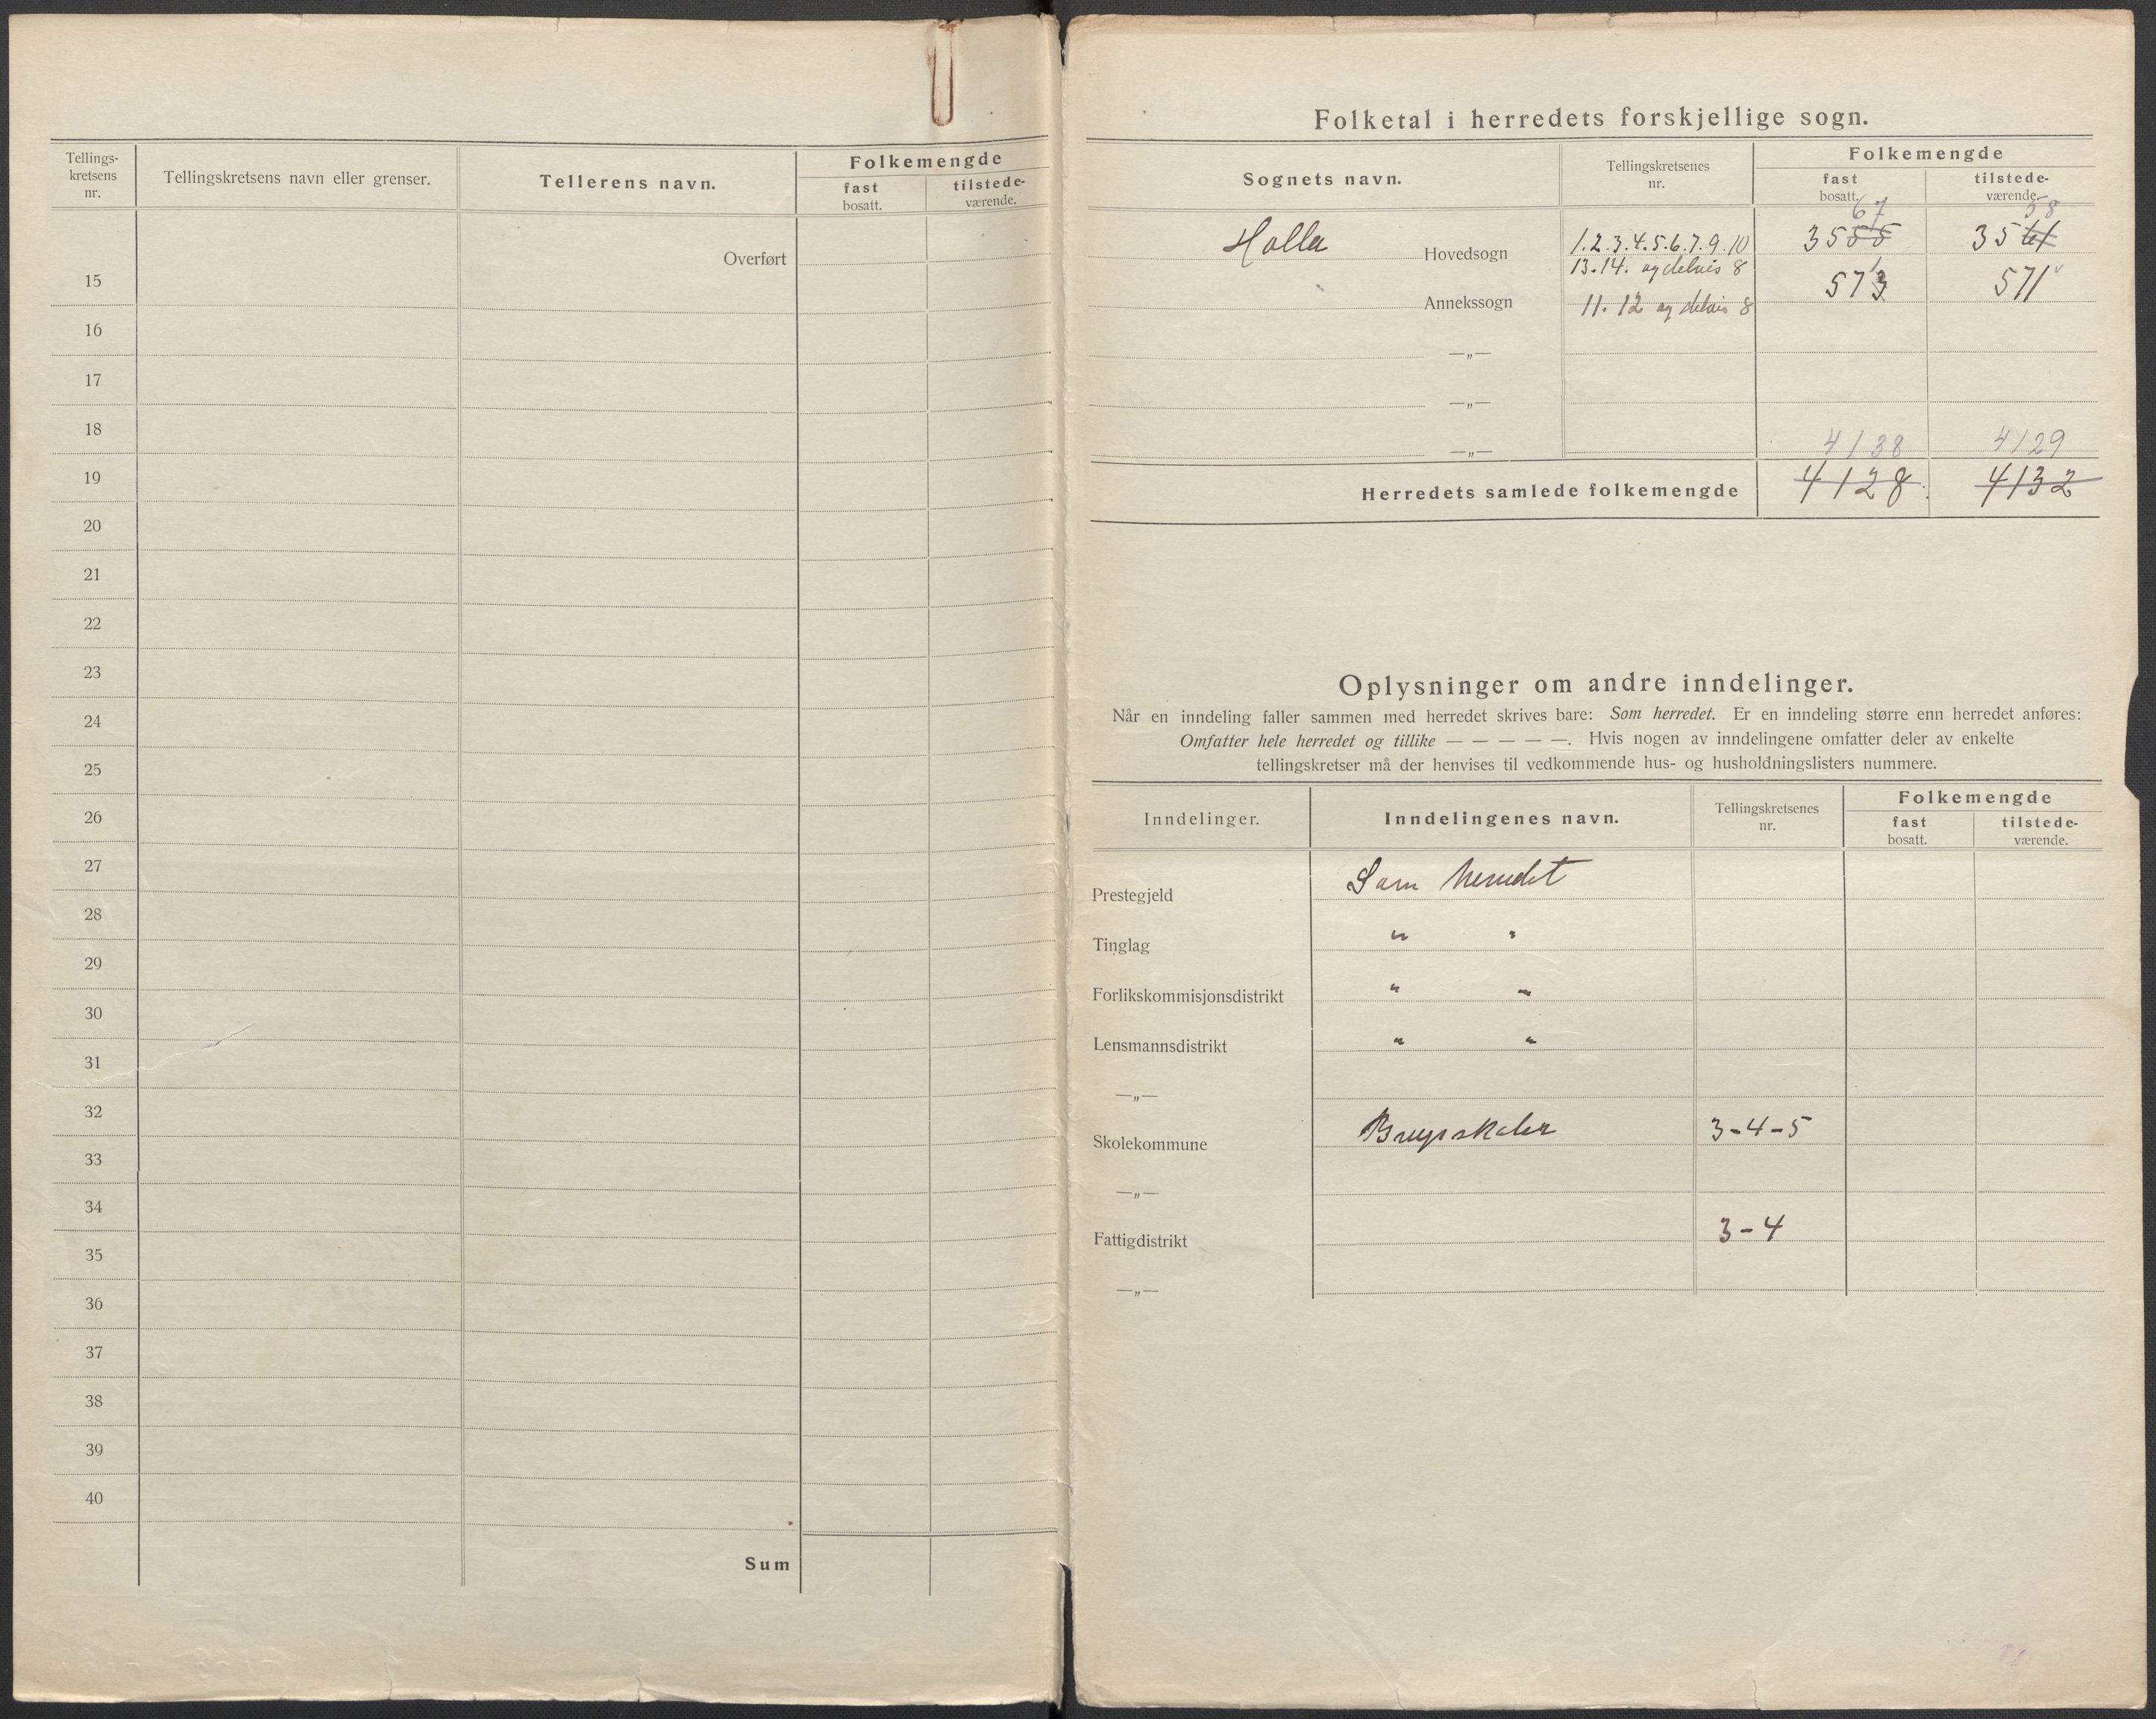 Tellings-
kretsens
nr.
Tellingskretsens navn eller grenser.
Tellerens navn.
Folkemengde
fast
bosatt.
tilstede-
værende.
Overført
15
16
17
18
19
20
21
22
23
24
25
26
27
28
29
30
31
32
33
34
35
36
37
38
39
40
Sum
Folketal i herredets forskjellige sogn.
Sognets navn.
Tellingskretsenes
nr.
Folkemengde
fast
bosatt.
tilstede-
værende.
67 58
Holla Hovedsogn 1.2.3.4.5.6.7.9.10 3555 3561
13.14. og delvis 8
Annekssogn 11. 12 og delvis 8 573 571
—„—
—„—
—„— 4138 4129
Herredets samlede folkemengde 4128 4132
Oplysninger om andre inndelinger.
Når en inndeling faller sammen med herredet skrives bare: Som herredet. Er en inndeling større enn herredet anføres:
Omfatter hele herredet og tillike — — — — —. Hvis nogen av inndelingene omfatter deler av enkelte
tellingskretser må der henvises til vedkommende hus- og husholdningslisters nummere.
Inndelinger.
Inndelingenes navn.
Tellingskretsenes
nr.
Folkemengde
fast
bosatt.
tilstede-
værende.
Prestegjeld Som herredet
Tinglag " "
Forlikskommisjonsdistrikt " "
Lensmannsdistrikt " "
—„—
Skolekommune 3-4-5
—„—
Fattigdistrikt 3-4
—„—